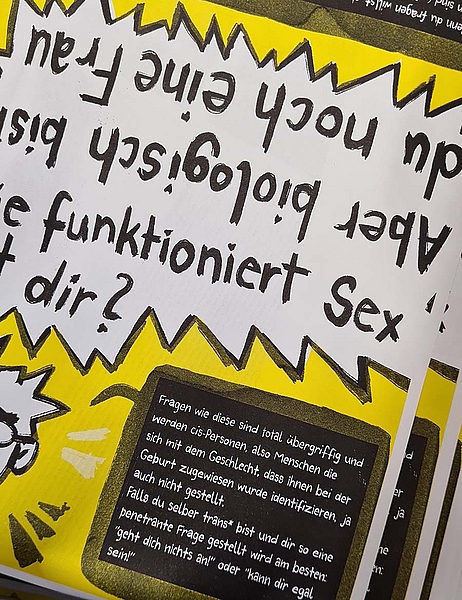 Aber biologisch bist
du noch eine Frau
ie funktioniert Sex
t dir?
Fragen wie diese sind total übergriffig und
werden cis-Personen, also Menschen die
sich mit dem Geschlecht, dass ihnen bei der
Geburt zugewiesen wurde identifizieren, ja
auch nicht gestellt.
Falls du selber trans* bist und dir so eine
penetrante Frage gestellt wird am besten:
"geht dich nichts an!" oder "kann dir egal
sein!"